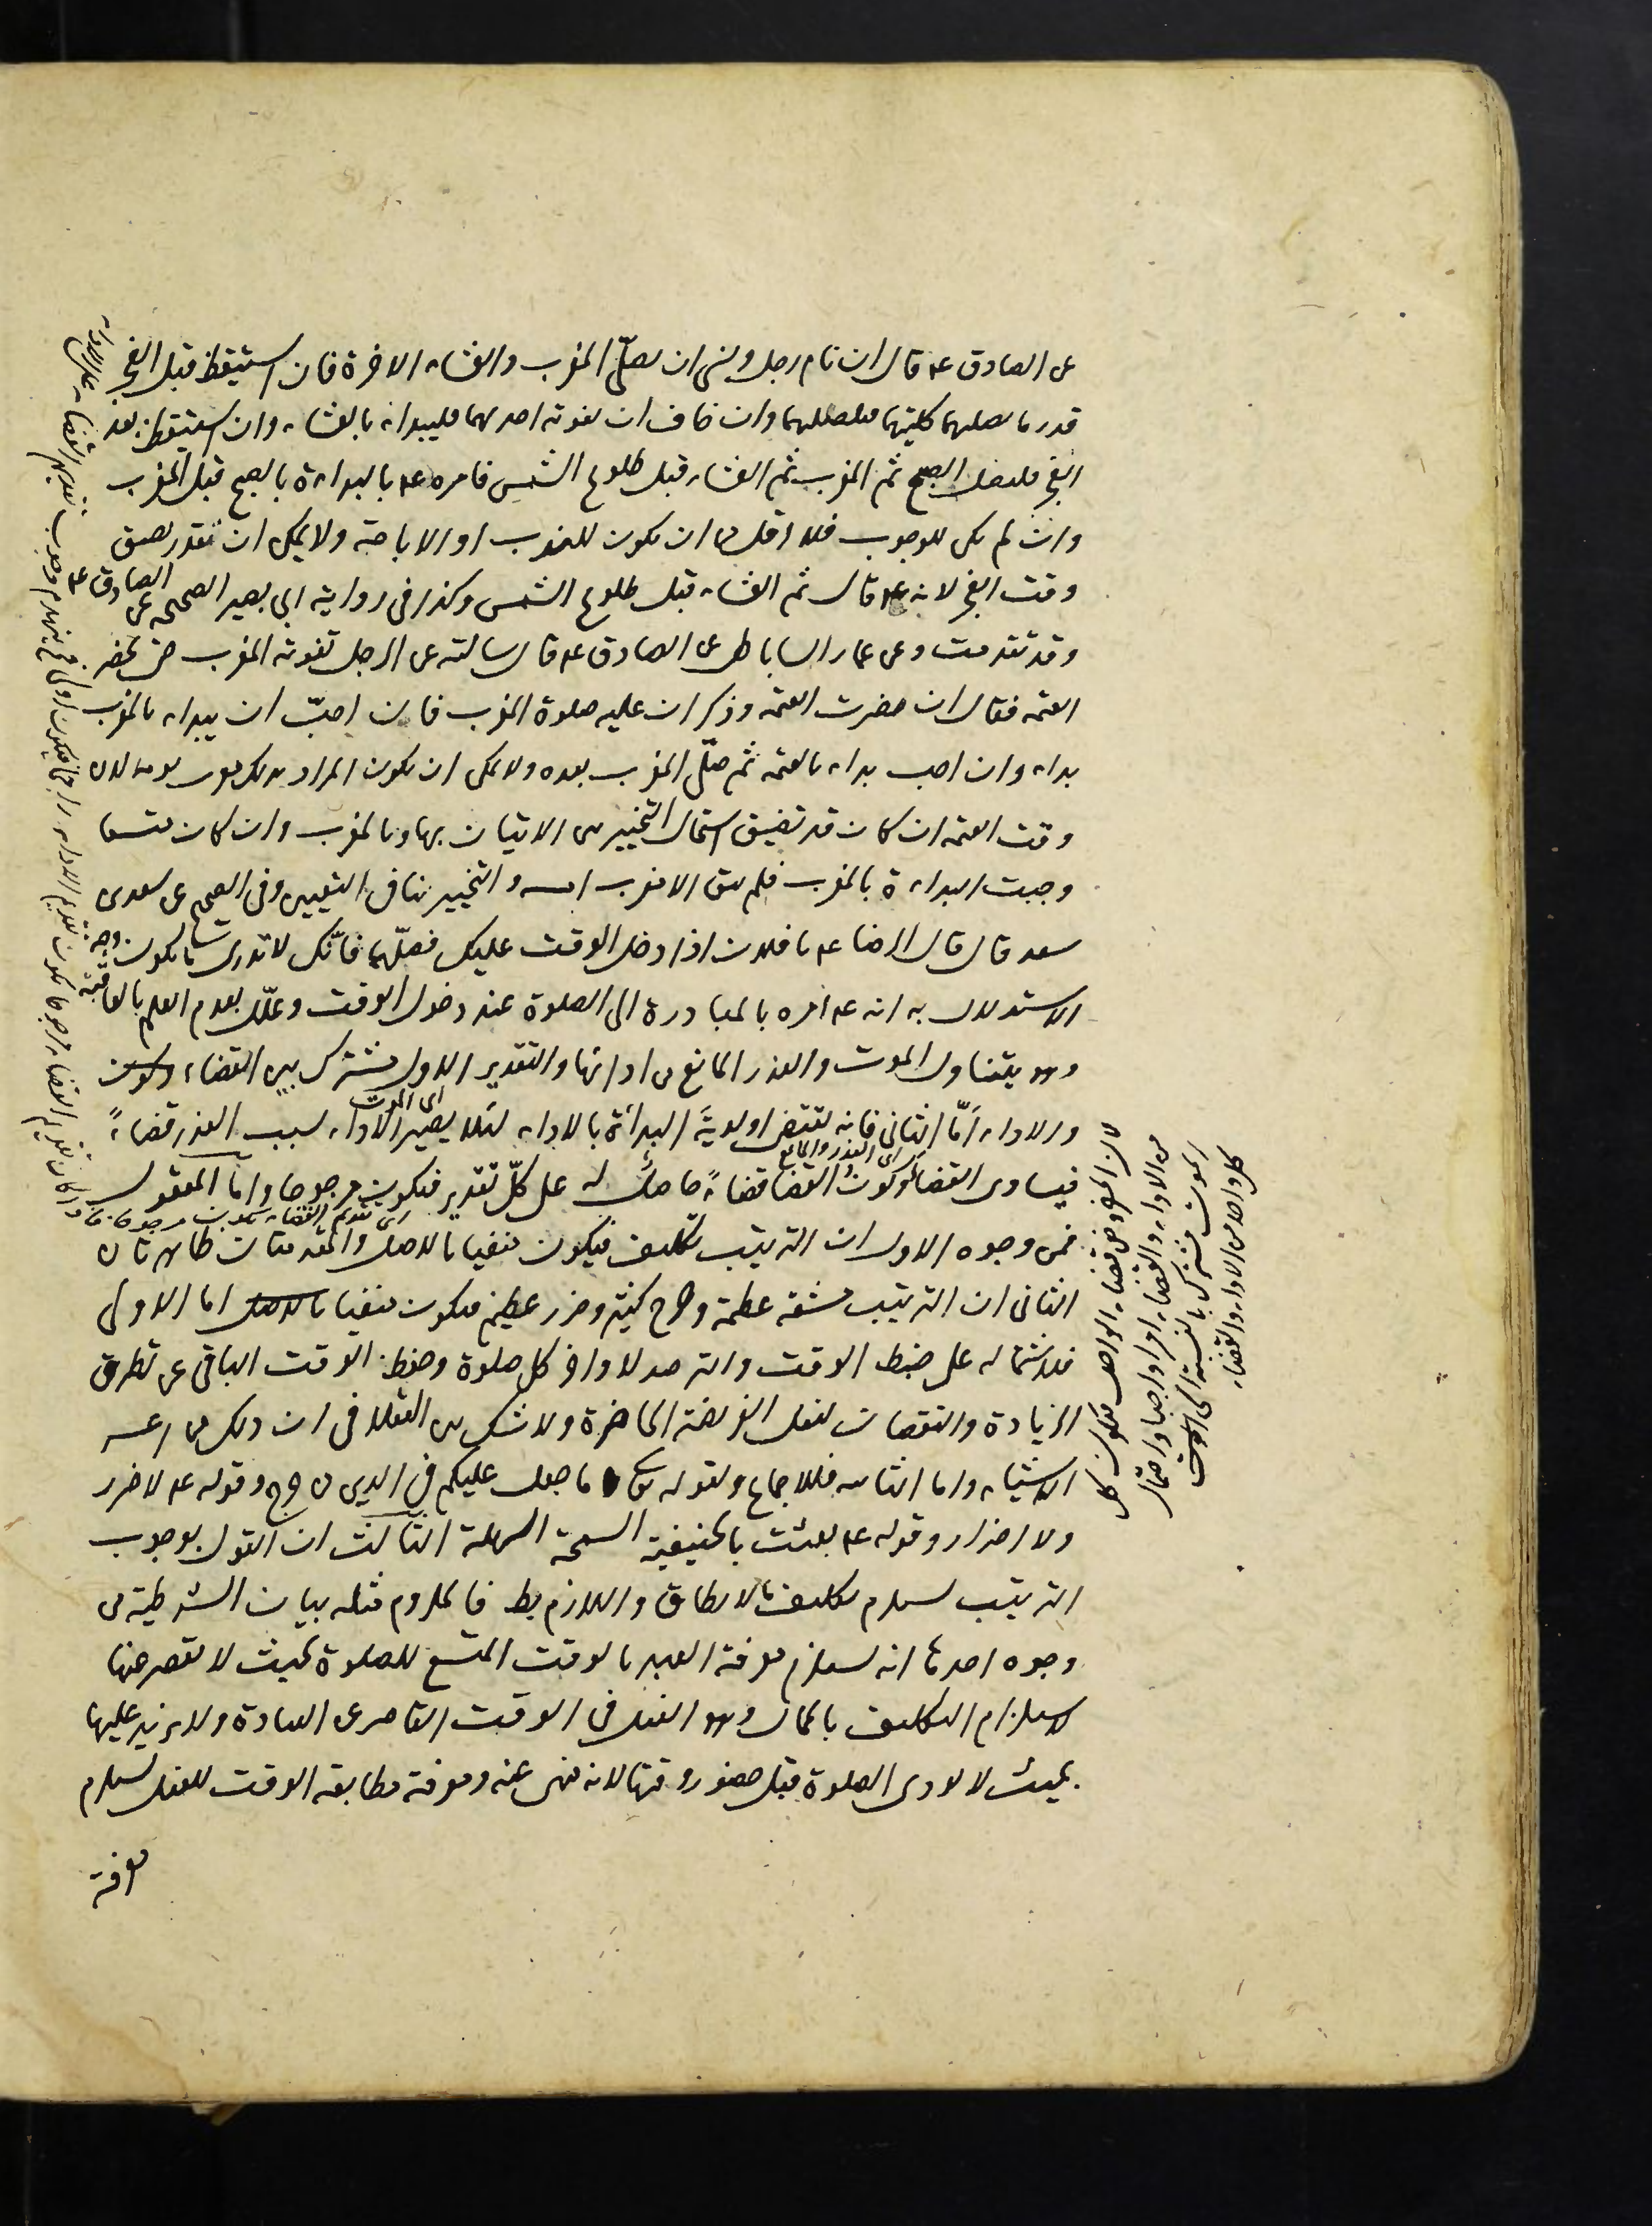 عن الصادق ع قال ان نام رجل ونسى ان يصلى المغرب والعشاء الاخرة فان استيقظ قبل الفجر
قدر ما يصليهما كليتهما فليصليهما وان خاف ان تفوته احديهما فليبداء بالعشاء وان استيقظ بعد
الفجر فليصل الصبح ثم المغرب ثم العشاء قبل طلوع الشمس فامره ع بالبداءة بالصبح قبل المغرب
وان لم يكن للوجوب فلا اقل من ان يكون للندب او الاباحة ولا يمكن ان تقدر تضيق
وقت الفجر لانه ع قال ثم العشاء قبل طلوع الشمس وكذا فى رواية ابى بصير الصحيحه عن الصادق ع
وقد تقدمت وعن عمار الساباطى عن الصادق ع قال سالته عن الرجل تفوته المغرب حتى تحضر
العتمه فقال ان حضرت العتمه وذكر ان عليه صلوة المغرب فان احبّ ان يبداء بالمغرب
بداء وان احب بداء بالعتمه ثم صلّى المغرب بعده ولا يمكن ان يكون المراد بذلك مغرب يومه لان
وقت العتمه ان كان قد تضيق استحال التخيير بين الاتيان بها وبالمغرب وان كان متسعا
وجبت البداءة بالمغرب فلم يبق الا مغرب امسه والتخيير ينافى التعيين وفى الصحيح عن سعد بن
سعد قال قال الرضا ع يا فلان اذا دخل الوقت عليك فصلّهما فانّك لا تدرى ما يكون وجه
الاستدلال به انه ع امره بالمبادرة الى الصلوة عند دخول الوقت وعلّل بعدم العلم بالعاقبة
وهو يتناول الموت والعذر المانع من ادائها والتقدير الاول مشترك بين القضاء
اى الموت
والاداء امّا الثانى فانه يقتضى اولويّة البدأة بالاداء لئلا يصير الاداء بسبب العذر قضاءً
اى العذر والمانع
فيساوى القضاء وكون القضا قضاءً حاصل له على كلّ تقدير فيكون مرجوحا واما المعقول
اى تقديم القضاء يكون مرجوحا
فمن وجوه الاول ان الترتيب تكليف فيكون منفيا بالاصل والمقدمتان ظاهرتان
الثانى ان الترتيب مشقه عظيمة وحرج كثير وضرر عظيم فيكون منفيا اما الاولى
فلاشتماله على ضبط الوقت والترصد لاواخر كل صلوة وحفظ الوقت الباقى عن تطرق
الزيادة والنقصان لفعل الفريضة الحاضرة ولا شك بين العقلا فى ان ذلك من اعسر
الاشياء واما الثانيه فللاجماع ولقوله تعالى ما جعل عليكم فى الدين من حرج وقوله ع لا ضرر
ولا اضرار وقوله ع بعثت بالحنيفية السمحة السهلة الثالث ان القول بوجوب
الترتيب يستلزم تكليف ما لا يطاق واللازم بط فالملزوم مثله بيان الشرطية من
وجوه احدها انه يستلزم معرفة العبد بالوقت المتسع للصلوة بحيث لا يقصر عنها
لاستلزام التكليف بالمحال وهو الفعل فى الوقت القاصر عن العبادة ولا يزيد عليها
بحيث لا يودى الصلوة قبل حضور وقتها لانه منهى عنه ومعرفة مطابقه الوقت للفعل يستلزم
معرفة
لان المفروض قضاء الواجب فيكون كل
من الاداء والقضاء امرا واجبا واحتمال
الموت مشترك بالنسبة الى
كل واحد من الاداء والقضاء